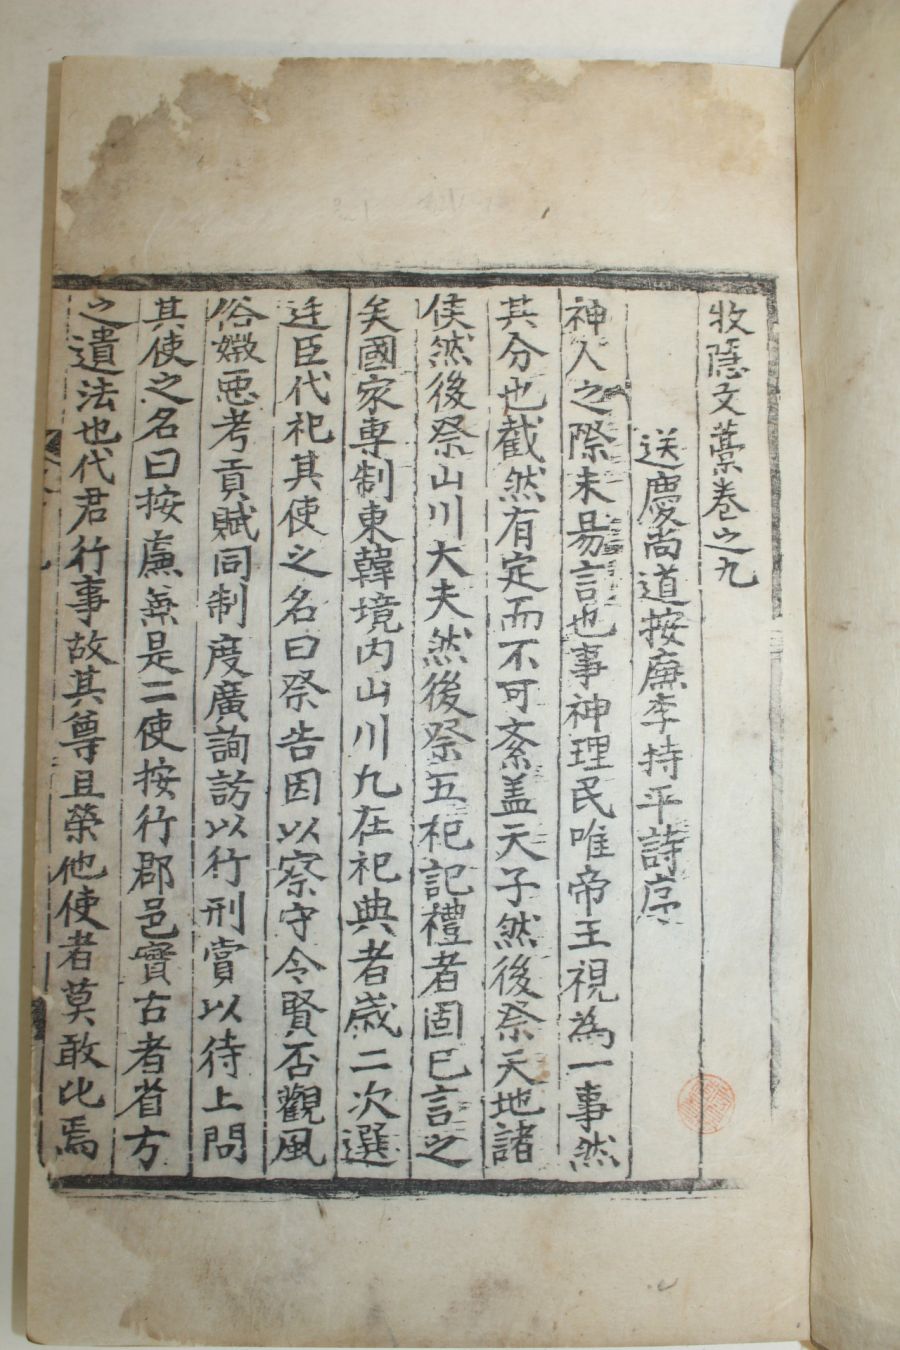 牧隱文藁卷之九
送慶尚道按廉李持平詩序
神人之際未易言也事神理民唯帝王視為一事然
其分也截然有定而不可紊盖天子然後祭天地諸
侯然後祭山川大夫然後祭五祀記禮者固已言之
矣國家専制東韓境內山川九在祀典者歲二次選
廷臣代祀其使之名曰祭告因以察守令賢否觀風
俗媺惡考貢賦同制度廣詢訪以行刑賞以待上問
其使之名曰按廉兼是二使按行郡邑實古者省方
之遺法也代君行事故其尊且榮他使者莫敢比焉